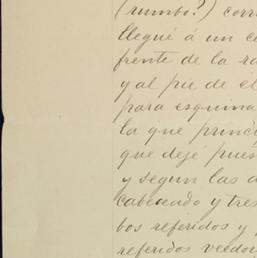 (rumbo?) corr
llegué á un c
frente de la ra
y al pie de el
para esquina
la que princi
que dejé pues
y segun las a
cabeceado y tres
bos referidos y
referidos veedor